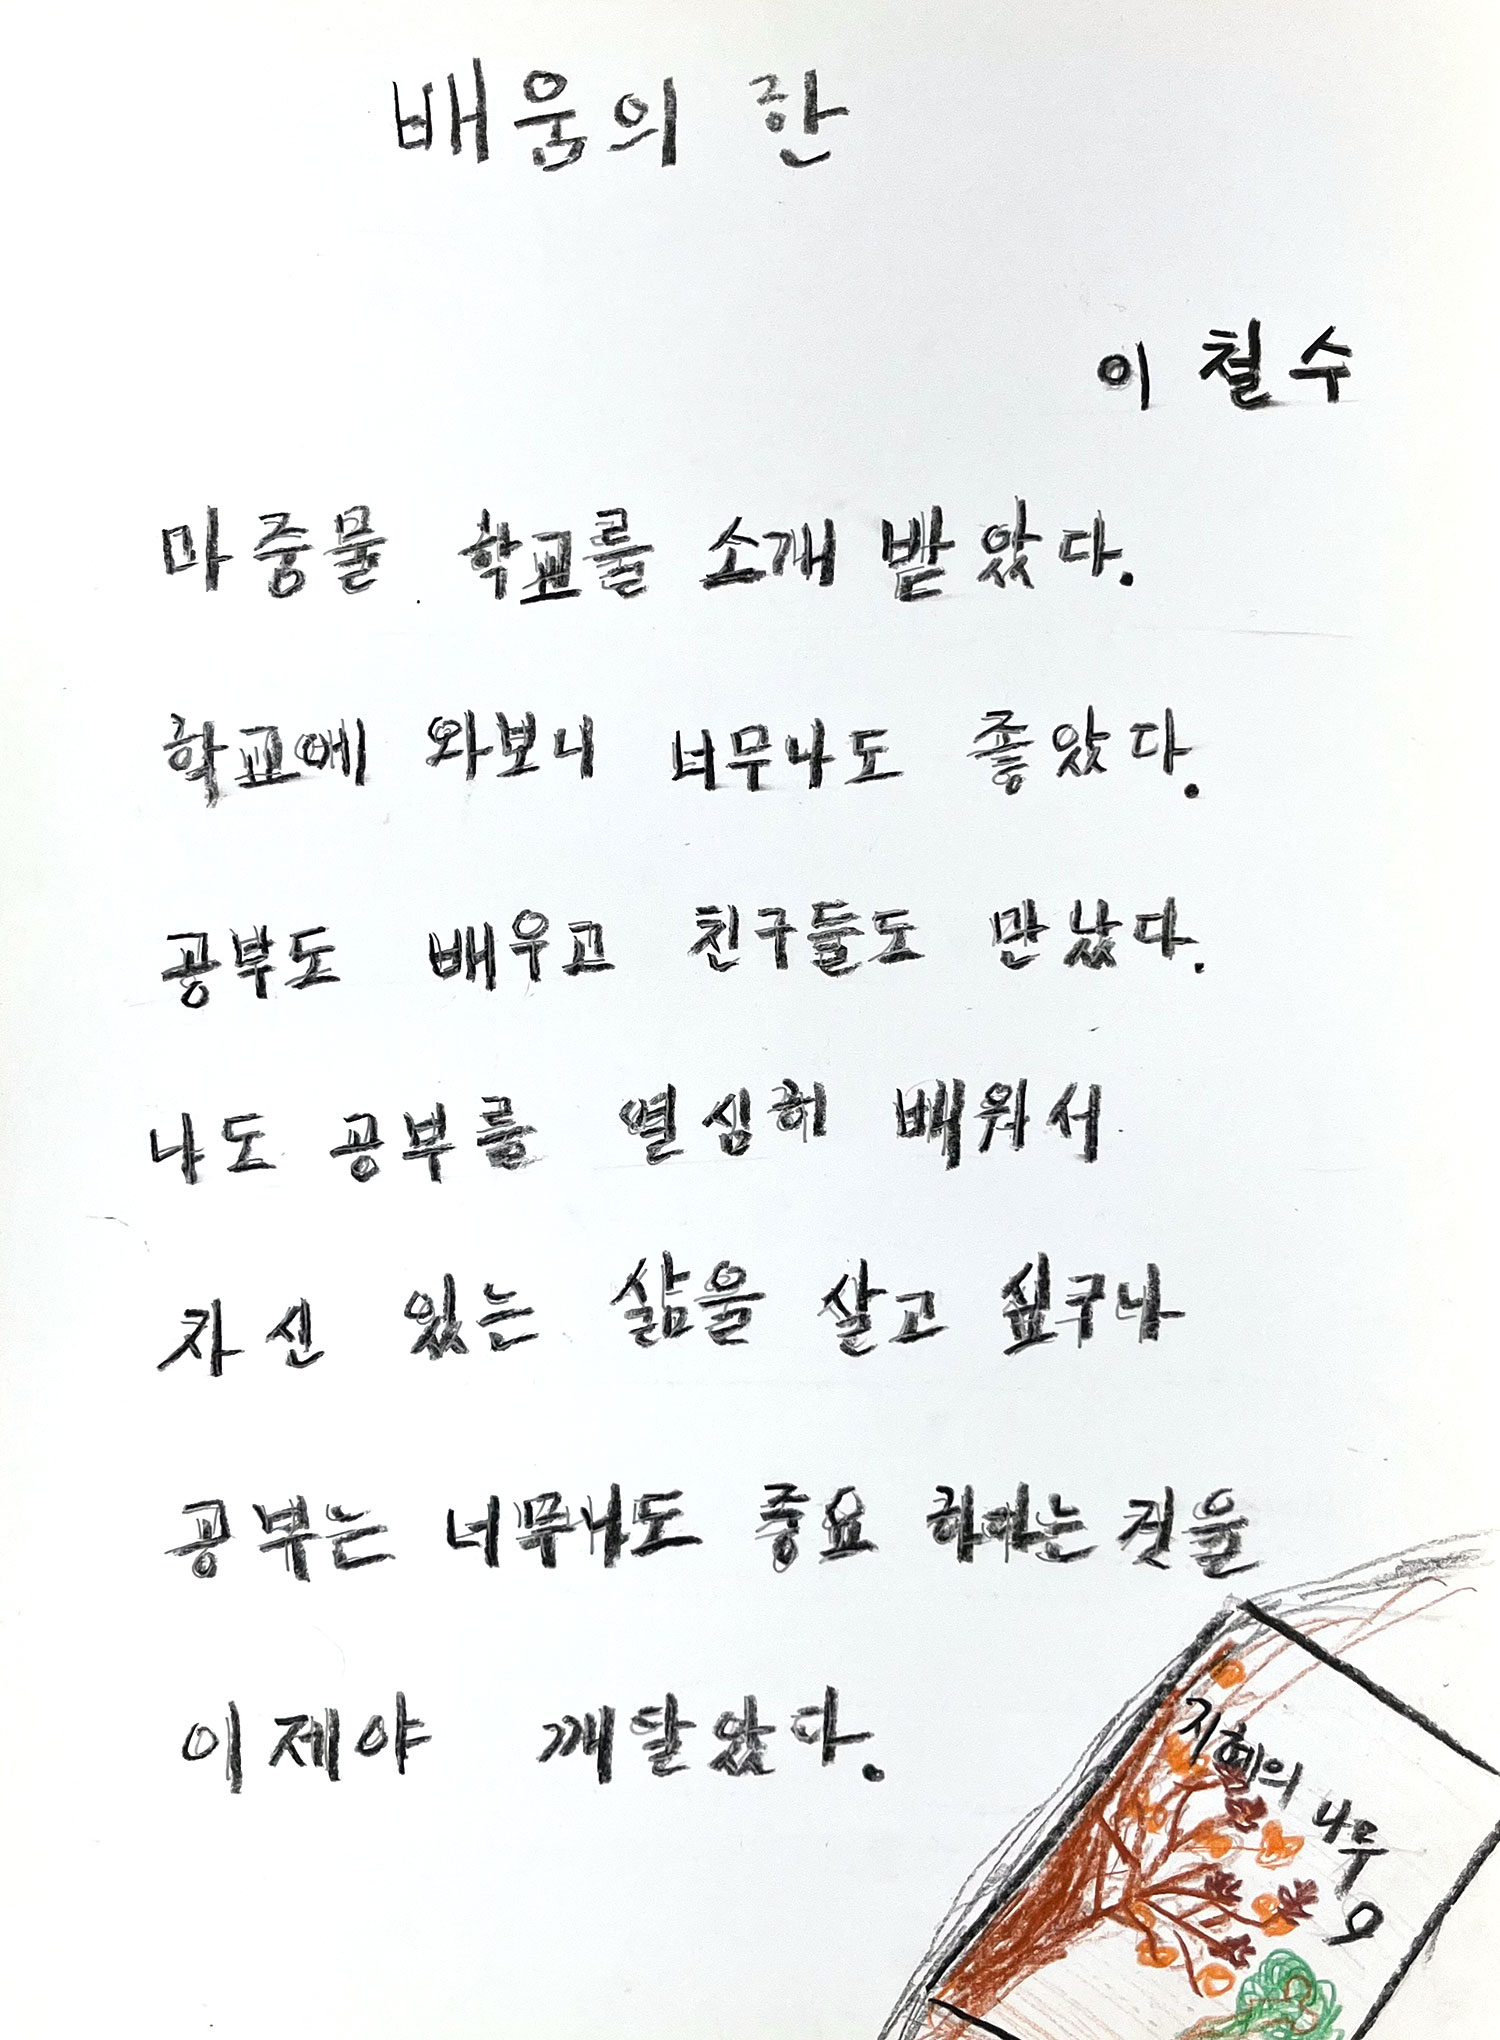 배움의 한
이 철수
마중물 학교를 소개 받았다.
학교에 와보니 너무나도 좋았다.
공부도 배우고 친구들도 만났다.
나도 공부를 열심히 배워서
자신 있는 삶을 살고 싶구나
공부는 너무나도 중요 하다는 것을
이제야 깨달았다.
지혜의 나무